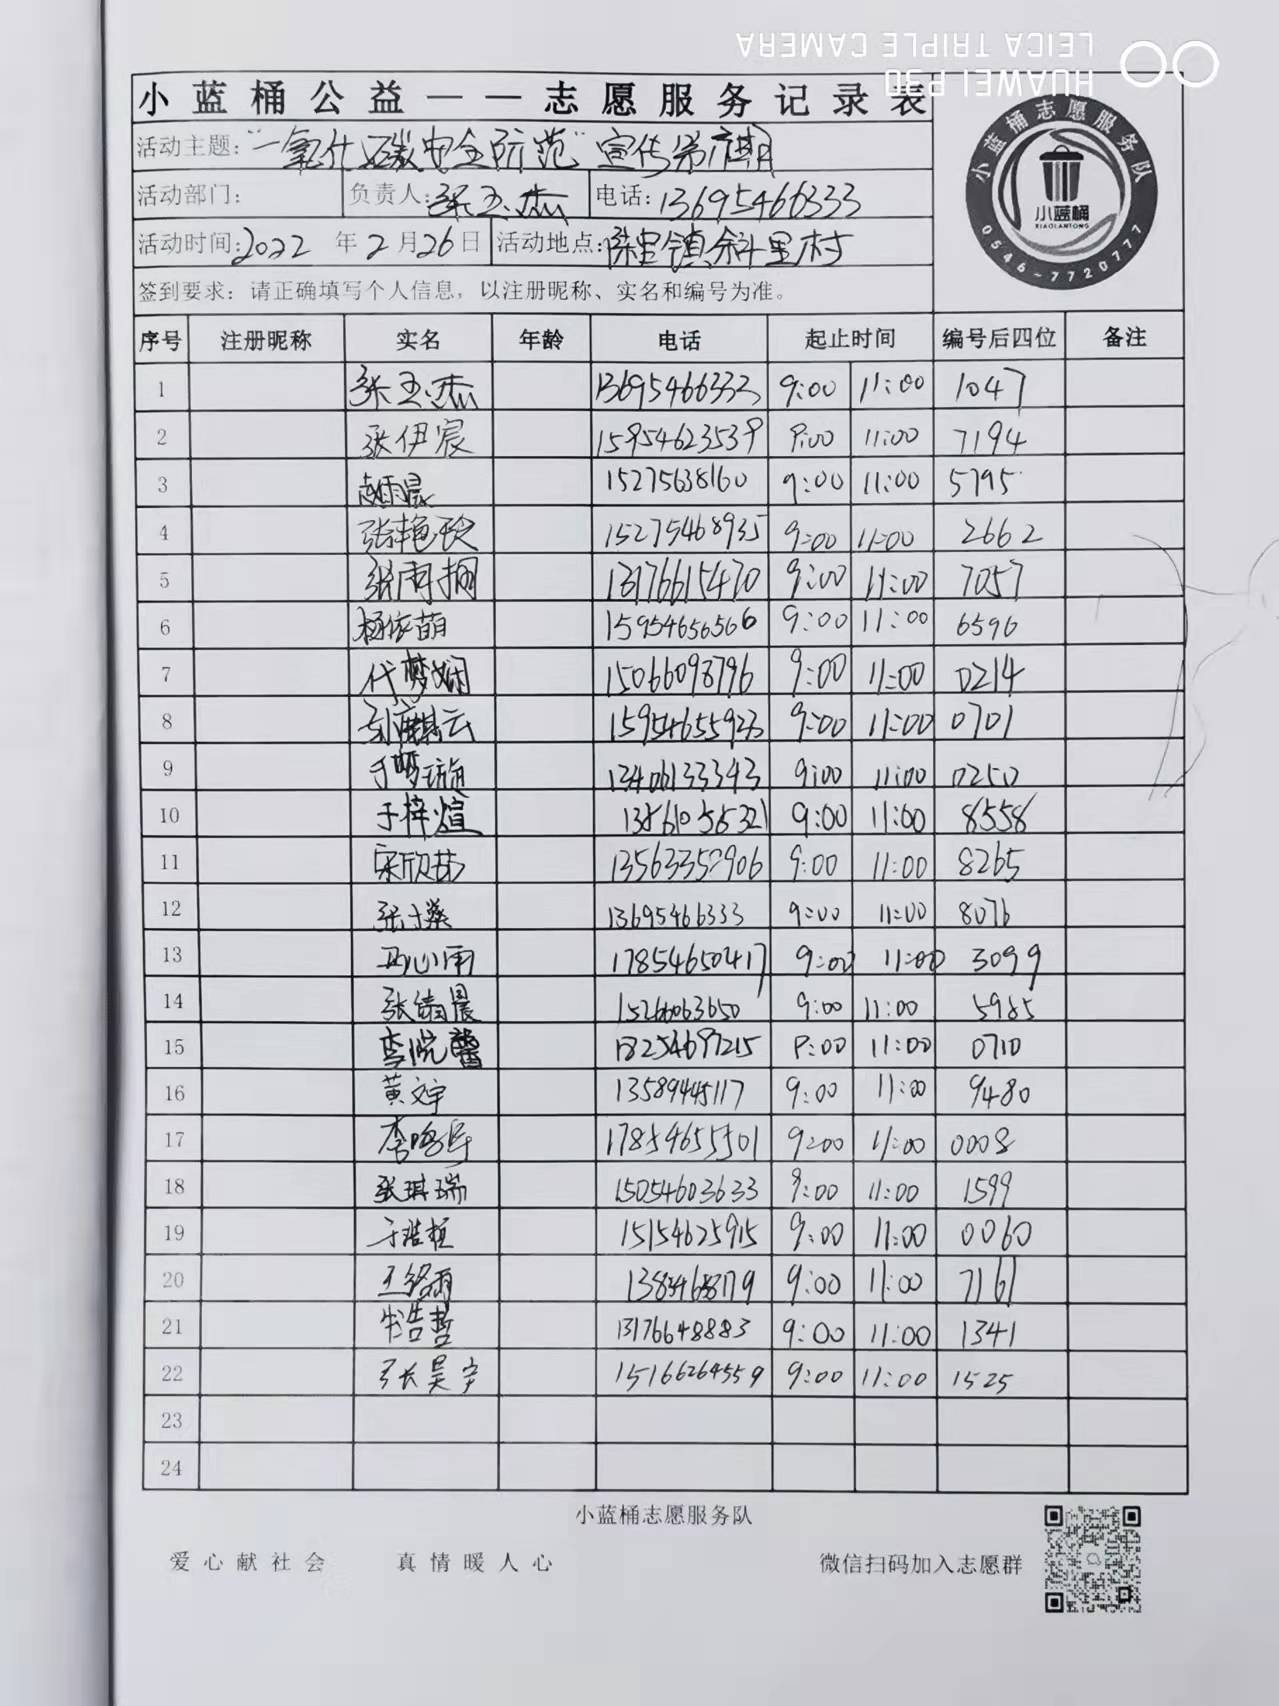 HUAWEI P30
LEICA TRIPLE CAMERA
小蓝桶公益——志愿服务记录表
小蓝桶志愿服务队
小蓝桶
XIAOLANTONG
0546-7720777
活动主题:"一氧化碳安全防范"宣传第 期
活动部门: 负责人:张玉杰 电话:13695466333
活动时间:2022年2月26日 活动地点: 镇斜里村
签到要求:请正确填写个人信息,以注册昵称、实名和编号为准。
序号 注册昵称 实名 年龄 电话 起止时间 编号后四位 备注
1 张玉杰 13695466333 9:00 11:00 1047
2 张伊宸 15954623539 9:00 11:00 7194
3 赵雨晨 15275638160 9:00 11:00 5795
4 张艳玲 15275468935 9:00 11:00 2662
5 张雨桐 13176615470 9:00 11:00 7057
6 杨依萌 15954656566 9:00 11:00 6596
7 代梦娴 15066098796 9:00 11:00 0214
8 刘麒云 15954655923 9:00 11:00 0701
9 于梦璇 13406133343 9:00 11:00 0250
10 于梓煊 13561055321 9:00 11:00 8558
11 宋欣茹 9:00 11:00 8265
12 13695466333 9:00 11:00 8076
13 马心雨 17854650417 9:00 11:00 3099
14 张倩晨 15266063650 9:00 11:00 5985
15 李悦馨 18254697215 9:00 11:00 0710
16 黄文宇 13589445117 9:00 11:00 9480
17 李鸣宇 17854655501 9:00 11:00 0008
18 张琪瑞 15054603633 9:00 11:00 1599
19 于浩桓 15154625915 9:00 11:00 0060
20 王铭雨 9:00 11:00 7161
21 牛浩哲 13176648883 9:00 11:00 1341
22 张昊宇 15166264559 9:00 11:00 1525
23
24
小蓝桶志愿服务队
爱心献社会 真情暖人心 微信扫码加入志愿群